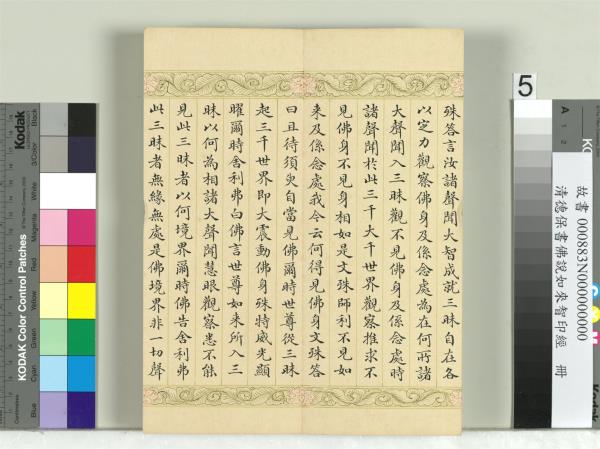 殊答言汝諸聲聞大智成就三昧自在各
以定力觀察佛身及係念處為在何所諸
大聲聞入三昧觀不見佛身及係念處時
諸聲聞於此三千大千世界觀察推求不
見佛身不見身相如是文殊師利不見如
来及係念處我今云何得見佛身文殊答
曰且待須臾自當見佛爾時世尊從三昧
起三千世界即大震動佛身殊特威光顯
曜爾時舍利弗白佛言世尊如来所入三
昧以何為相諸大聲聞慧眼觀察悉不能
見此三昧者以何境界爾時佛告舍利弗
此三昧者無緣無處是佛境界非一切聲
5
故書 000883N000000000
清德保書佛說如來智印經 冊
Kodak
KODAK Color Control Patches
Blue
Cyan
Green
Yellow
Red
Magenta
White
3/Color
Black
A
1
2